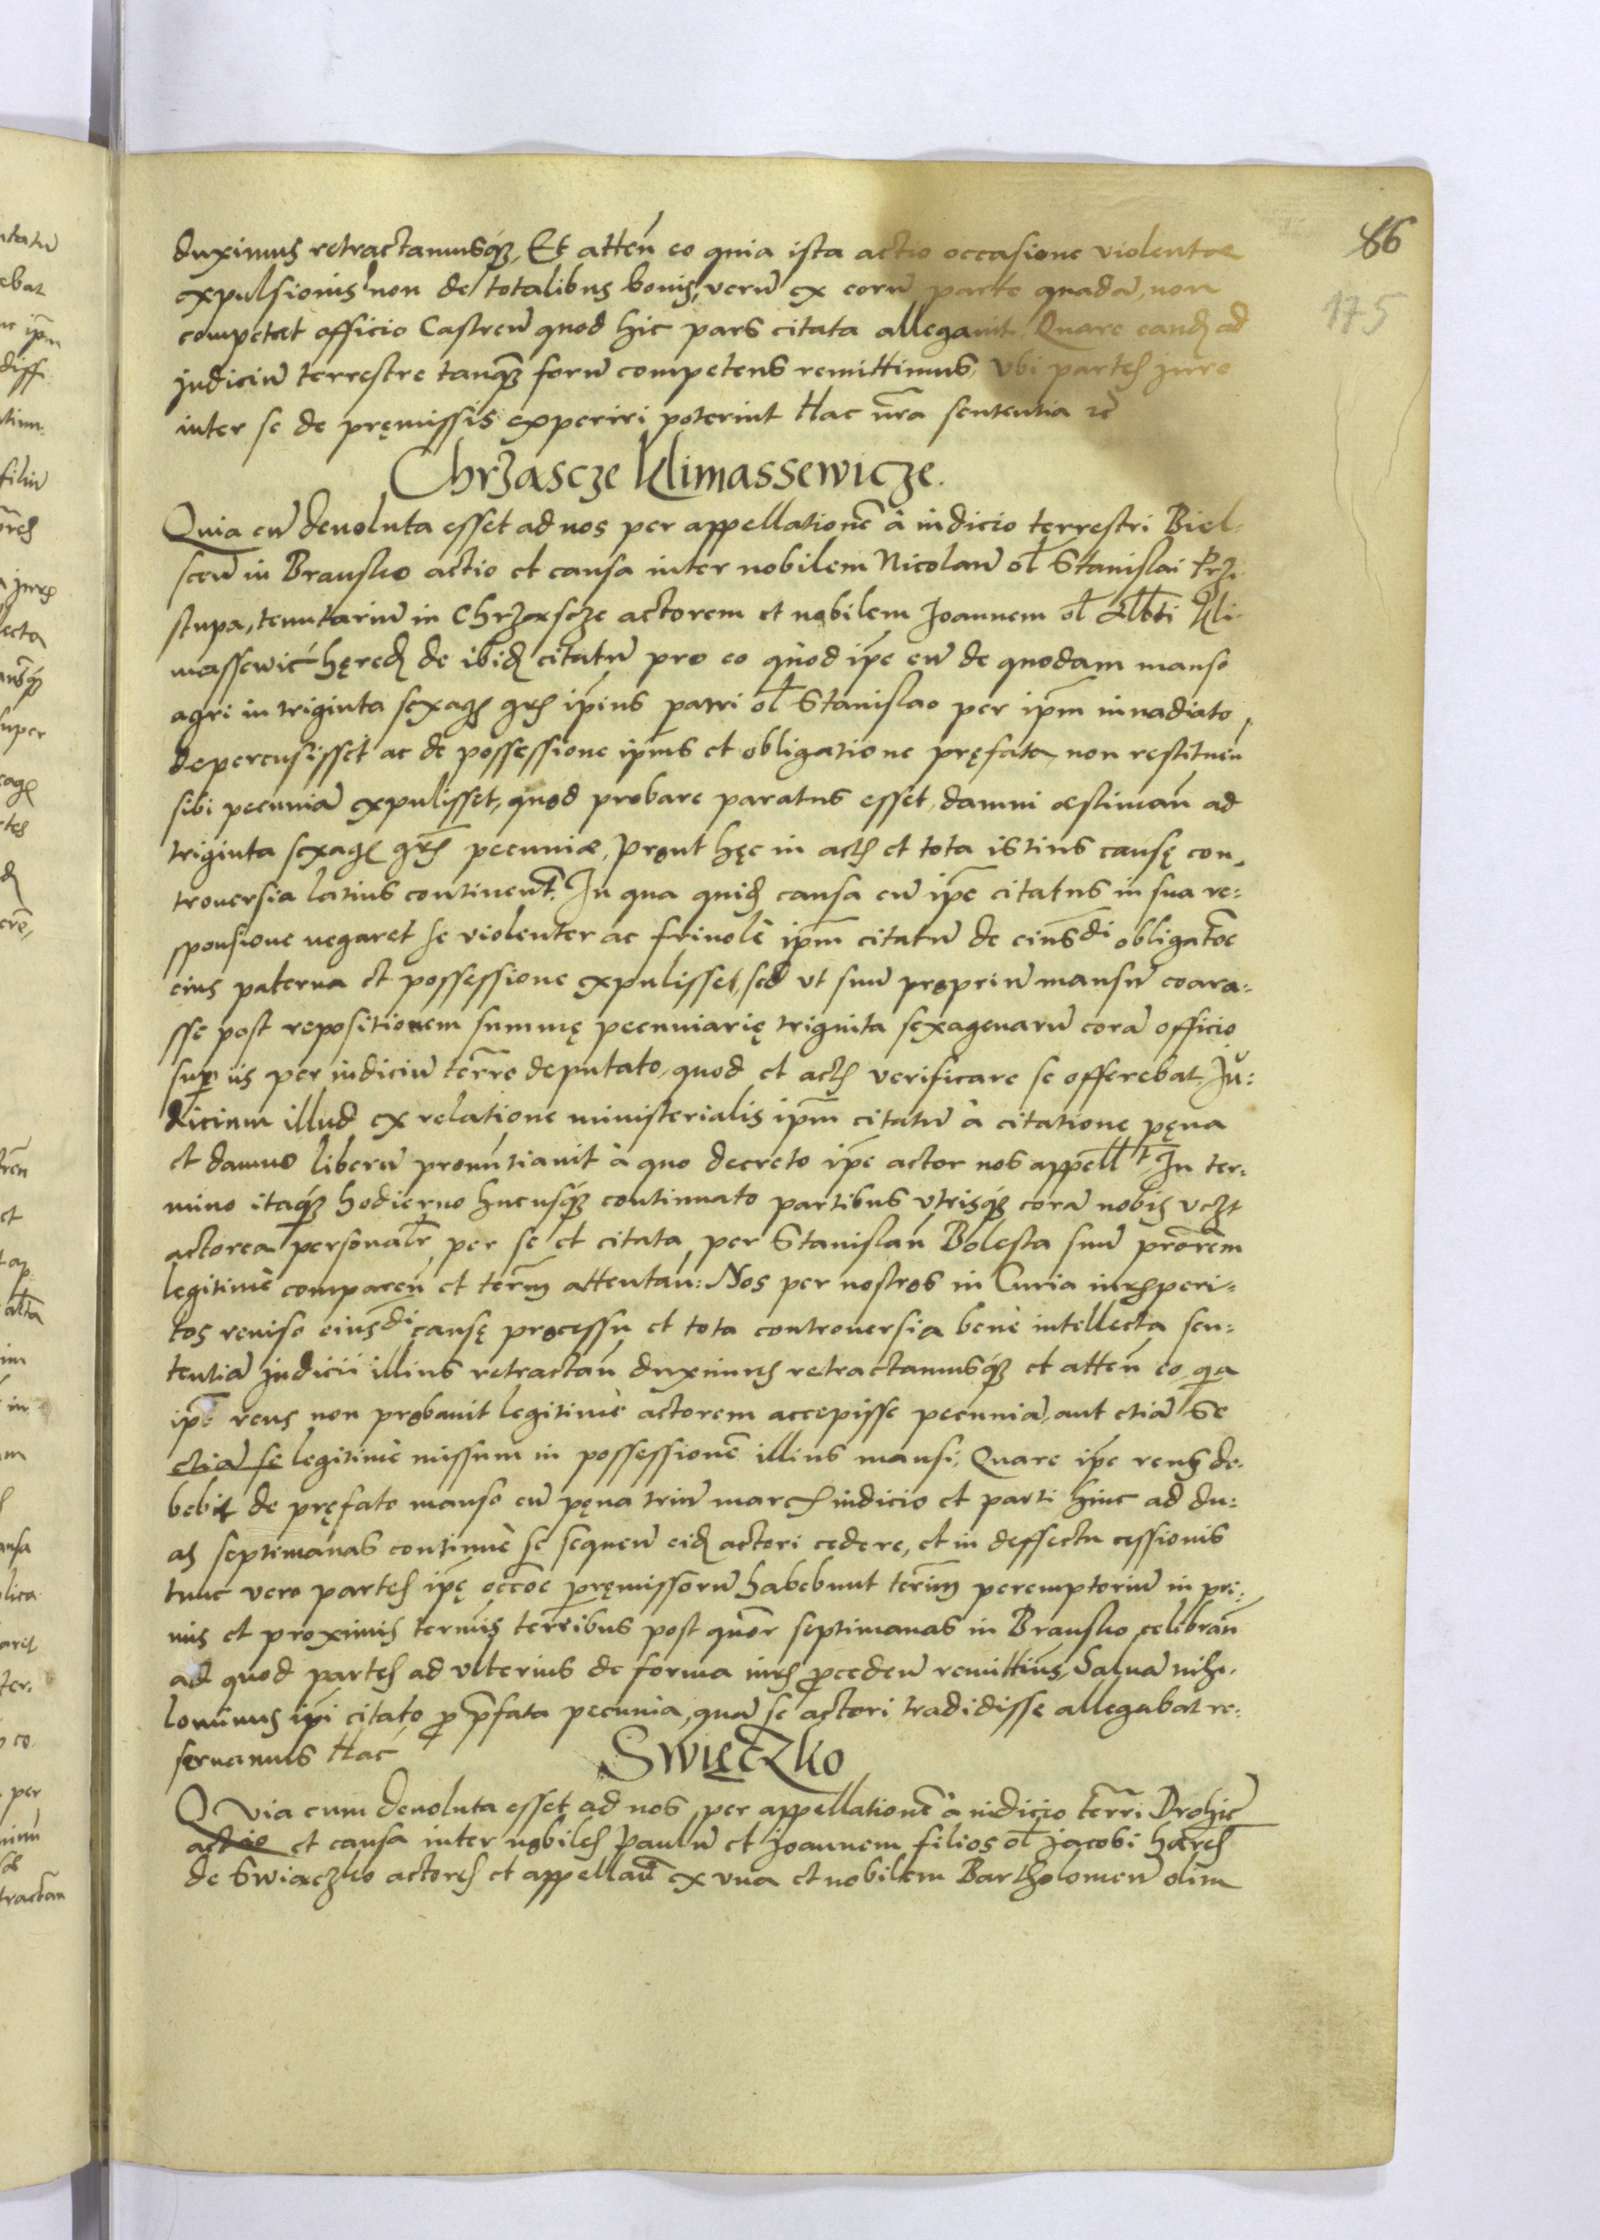 86
175
duximus retractamusq́ꝫ, Et atteń eo quia ista actio occasione violentae
expulsionis non de totalibus bonis, verū ex eorū parte quadā, non
competat officio Castreń quod hic pars citata allegavit. Quare eandꝫ ad
judiciū terrestre tanq̃ꝫ forū competens remittimus, Vbi partes jure
inter se de pręmissis experiri poterint Hac nr̄a sententia ꝛc̄
Chrząscze Klimassewicze.
Quia cū deuoluta esset ad nos per appellationē â iudicio terrestri Biel-
sceń in Bransko actio et causa inter nobilem Nicolaū ol̄ Stanislai Prz̨i
stupa, tenutariū in Chrząscze actorem et nobilem Joannem ol̄ Alb̄ti Kli-
massewić hęredꝫ de ibidꝫ citatū pro eo quòd ip̄e eū de quodam manso
agri in triginta sexagꝫ grꝫ ip̄ius patri ol̄ Stanislao per ip̄m inuadiato,
depercusisset ac de possessione ip̄ius et obligatione pręfata non restitueń
sibi pecuniā expulisset, quod probare paratus esset, damni aestimań ad
triginta sexagꝫ grꝫ pecuniae, prout hęc in actis et tota istius causę con-
trouersia latius continent̄. In qua quidꝫ causa cū ip̄e citatus in sua re-
sponsione negaret se violenter ac friuolè ip̄m citatū de eiusdi obligat̄oe
eius paterna et possessione expulisset, sed vt suū propriū mansū coara-
sse post repositionem summę pecuniarię triginta sexagenarū corā officio
sup̱ iis per iudiciū ter̄re deputato, quod et actis verificare se offerebat Ju-
dicium illud ex relatione ministerialis ip̄m citatū â citatione pęna
et damno liberū pronūtiauit à quo decreto ip̄e actor nos appell̄t. In ter-
mino itaq́ꝫ hodierno hucusq́ꝫ continuato partibus vtrisq́ꝫ corā nobis vczt
actorea personalr̄ per se et citata per Stanislaū Bolesta suū pr̄orem
legitimè compareń et ter̄m attentań: Nos per nostros in Curia iurisperi-
tos reuiso eiusdi causę processu et tota controuersia bene intellecta sen-
tentiā judicii illius retractań duximus retractamusq́ꝫ et atteń eo, qa
ip̄e reus non probauit legitimè actorem accepisse pecuniā, aut etiā se
etiā se legitimè missum in possessionē illius mansi, Quare ip̄e reus de-
bebit de pręfato manso cū pęna triū marcꝫ iudicio et parti hinc ad du-
as septimanas continuè se sequeń eidꝫ actori cedere, et in deffectu cessionis
tunc vero partes ip̄ę occ̄oe pręmissorū habebunt ter̄im peremptoriū in pri-
mis et proximis ter̄mis terr̄ibus post quōr septimanas in Bransko celebrań
ad quod partes ad vlterius de forma iuris ꝓcedeń remittim̄s, Saluā nihi-
lominus ip̄i citato ꝓ p̄fata pecunia, quā se actori tradidisse allegabat re-
seruamus Hac
Swięczko
QVia cum deuoluta esset ad nos per appellationē â iudicio ter̄ri Drohić
actio et causa inter nobiles Paulū et Joannem filios ol̄ Jacobi haeredꝫ
de Swiaeczko actores et appellań ex vna et nobilem Bartholomeū olim